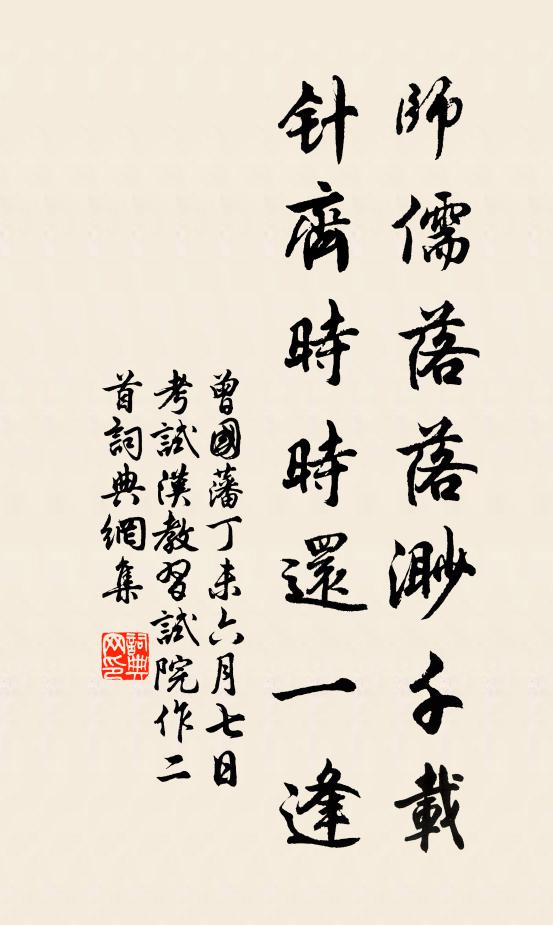 師儒落落渺千載
針齊時時還一逢
曾國藩丁未六月七日
考試漢教習試院作二
首詞典網集
詞典
网印